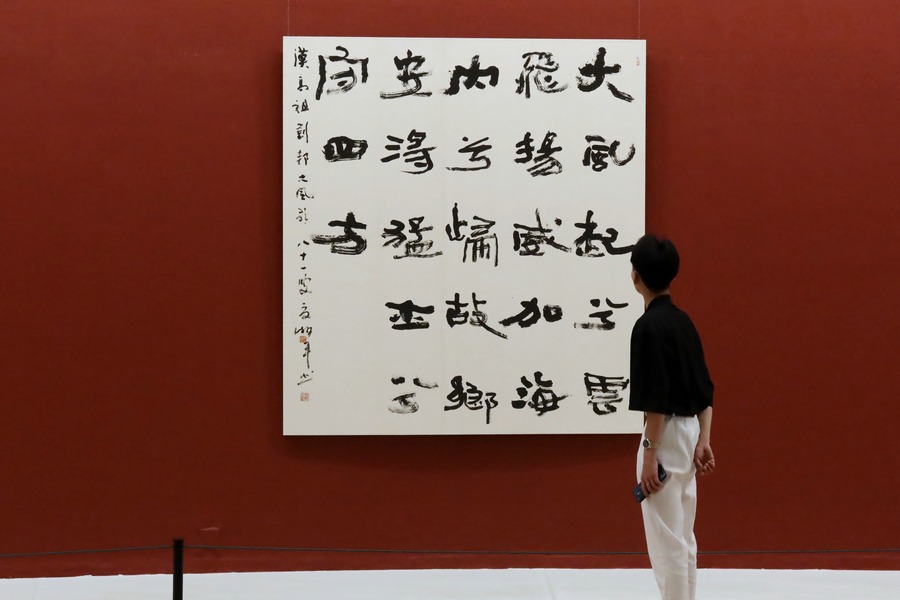 大風起兮雲
飛揚威加海
内兮歸故鄉
安得猛士兮
守四方
漢高祖劉邦大風歌 八十一叟